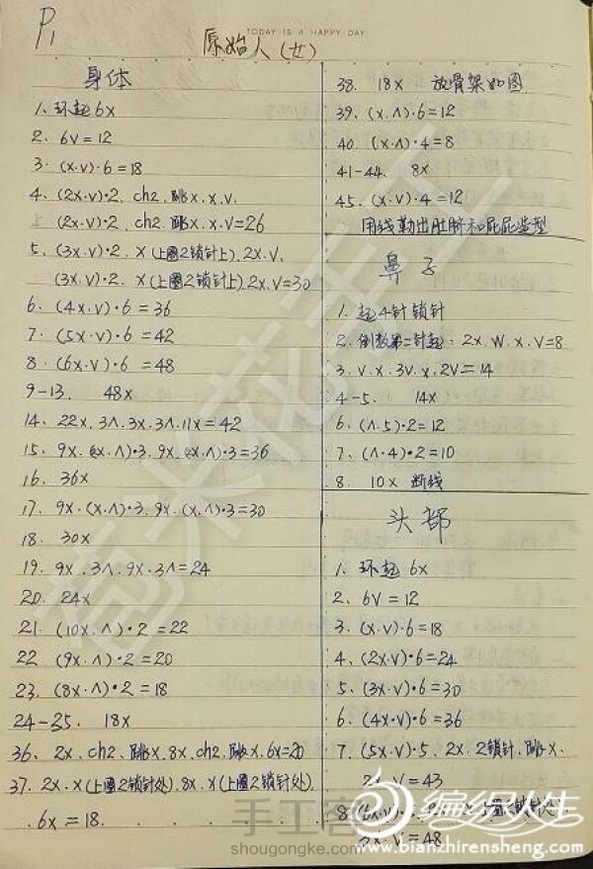 P1
TODAY IS A HAPPY DAY
原始人(女)
身体
1. 环起 6x
2. 6v=12
3. (x.v)·6=18
4. (2x.v)·2. ch2. 跳x. x.v.
(2x.v)·2. ch2. 跳x. x.v=26
5. (3x.v)·2. x(上圈2锁针上). 2x.v.
(3x.v)·2. x(上圈2锁针上). 2x.v=30
6. (4x.v)·6=36
7. (5x.v)·6=42
8. (6x.v)·6=48
9-13. 48x
14. 22x. 3Λ. 3x. 3Λ. 11x=42
15. 9x. (2x.Λ)·3. 9x. (2x.Λ)·3=36
16. 36x
17. 9x.(x.Λ)·3. 9x.(x.Λ)·3=30
18. 30x
19. 9x. 3Λ. 9x. 3Λ=24
20. 24x
21. (10x.Λ)·2=22
22 (9x.Λ)·2=20
23. (8x.Λ)·2=18
24-35. 18x
36. 2x. ch2. 跳x. 8x. ch2. 跳x. 6x=20
37. 2x. x(上圈2锁针处). 8x. x(上圈2锁针处).
6x=18.
38. 18x 放骨架如图
39. (x.Λ)·6=12
40. (x.Λ)·4=8
41-44. 8x
45. (x.v)·4=12
用线勒出肚脐和屁屁造型
鼻子
1. 起4针锁针
2. 倒数第二针起: 2x. w. x. v=8
3. v. x. 3v. x. 2v=14
4-5. 14x
6. (Λ.5)·2=12
7. (Λ.4)·2=10
8. 10x 断线
头部
1. 环起 6x
2. 6v=12
3. (x.v)·6=18
4. (2x.v)·6=24
5. (3x.v)·6=30
6. (4x.v)·6=36
7. (5x.v)·5. 2x. 2锁针. 跳x.
2x.v=43
8. (6x.v)
3x.v=48
苞米花手工
手工客
shougongke.com
编织人生
www.bianzhirensheng.com